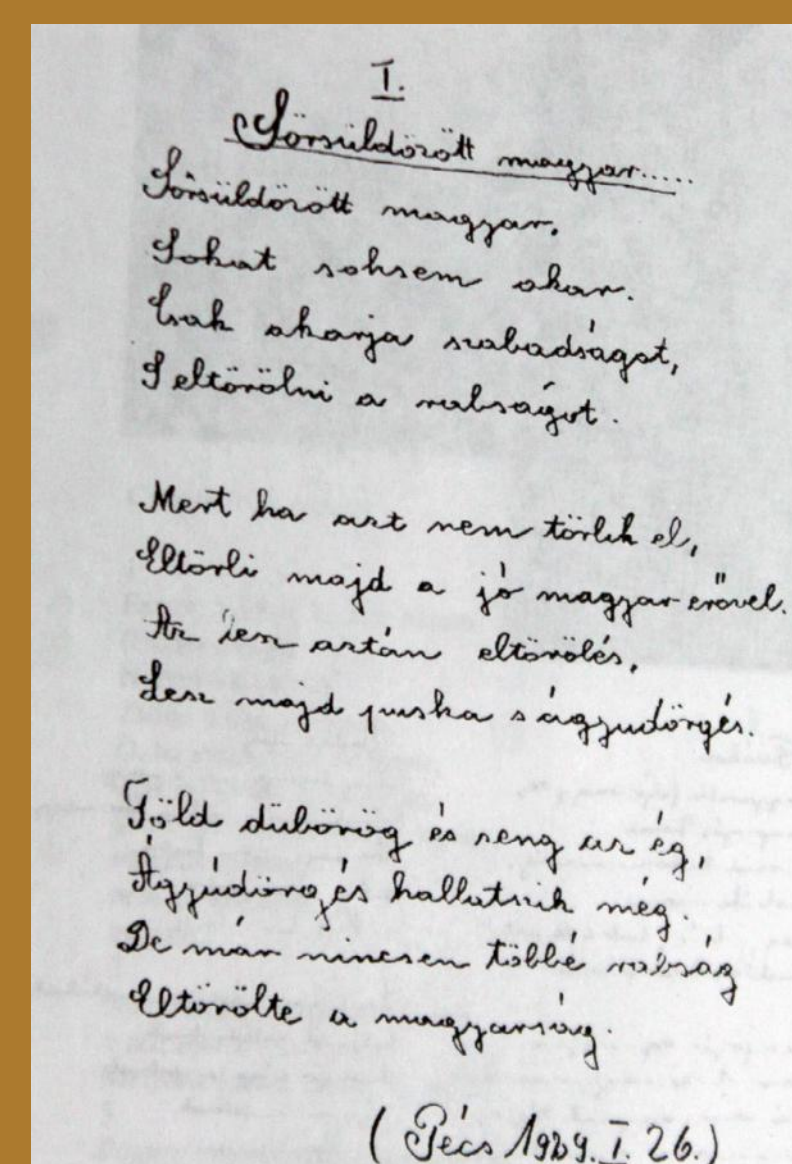 I.
Sörsüldözött magyar.....
Sörsüldözött magyar.
Sokat sohsem akar.
Csak akarja szabadságot,
S eltörölni a rabságot.
Mert ha azt nem törlik el,
Eltörli majd a jó magyar erővel.
Az lesz aztán eltörölés,
Lesz majd puska s ágyudörgés.
Föld dübörög és reng az ég,
Ágyúdörgés hallatszik még.
De már nincsen többé rabság
Eltörölte a magyarság.
(Pécs 1929. I. 26.)